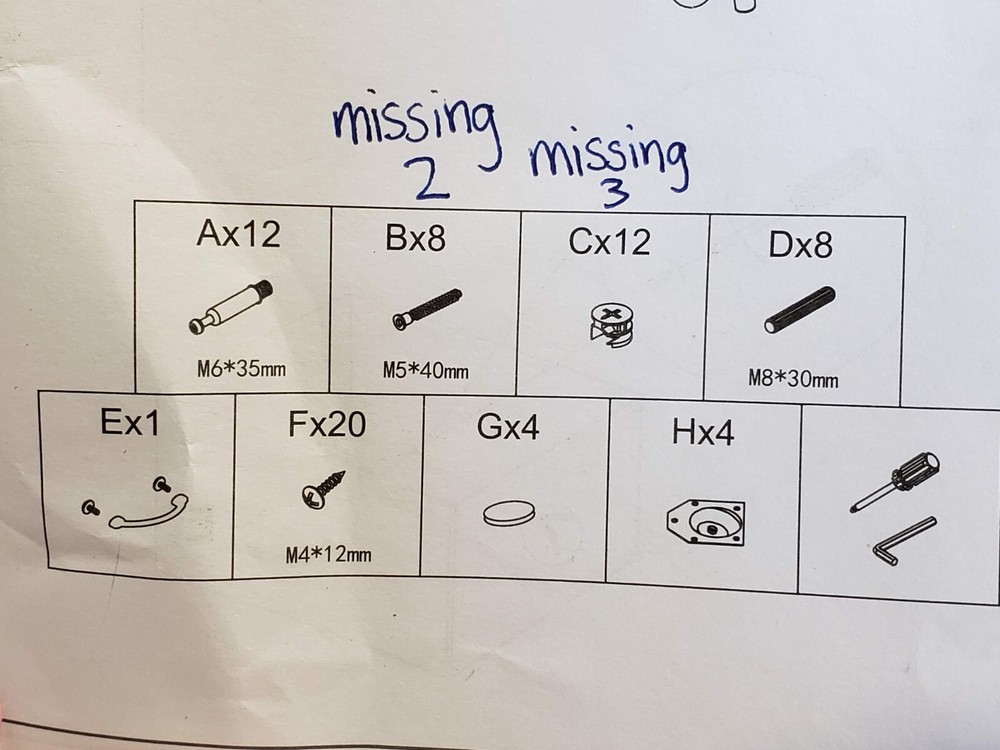 missing
2
missing
3
Ax12
Bx8
Cx12
Dx8
M6*35mm
M5*40mm
M8*30mm
Ex1
Fx20
Gx4
Hx4
M4*12mm